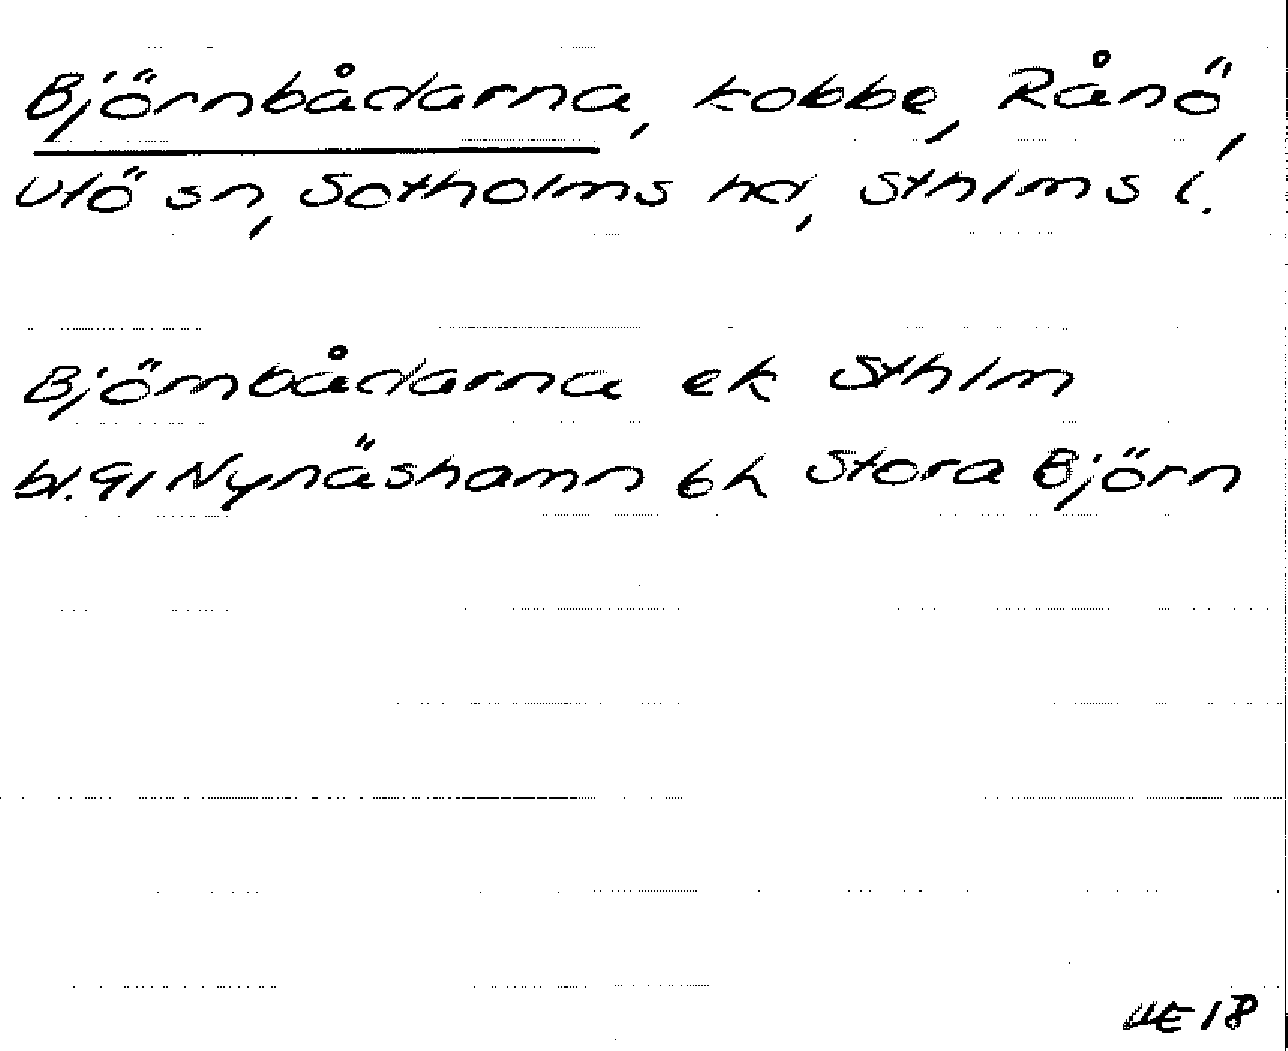 Björnbådarna, kobbe, Rånö,
Utö sn, Sotholms hd, Sthlms l.
Björnbådarna ek Sthlm
bl. 91 Nynäshamn 6h Stora Björn
UE 18